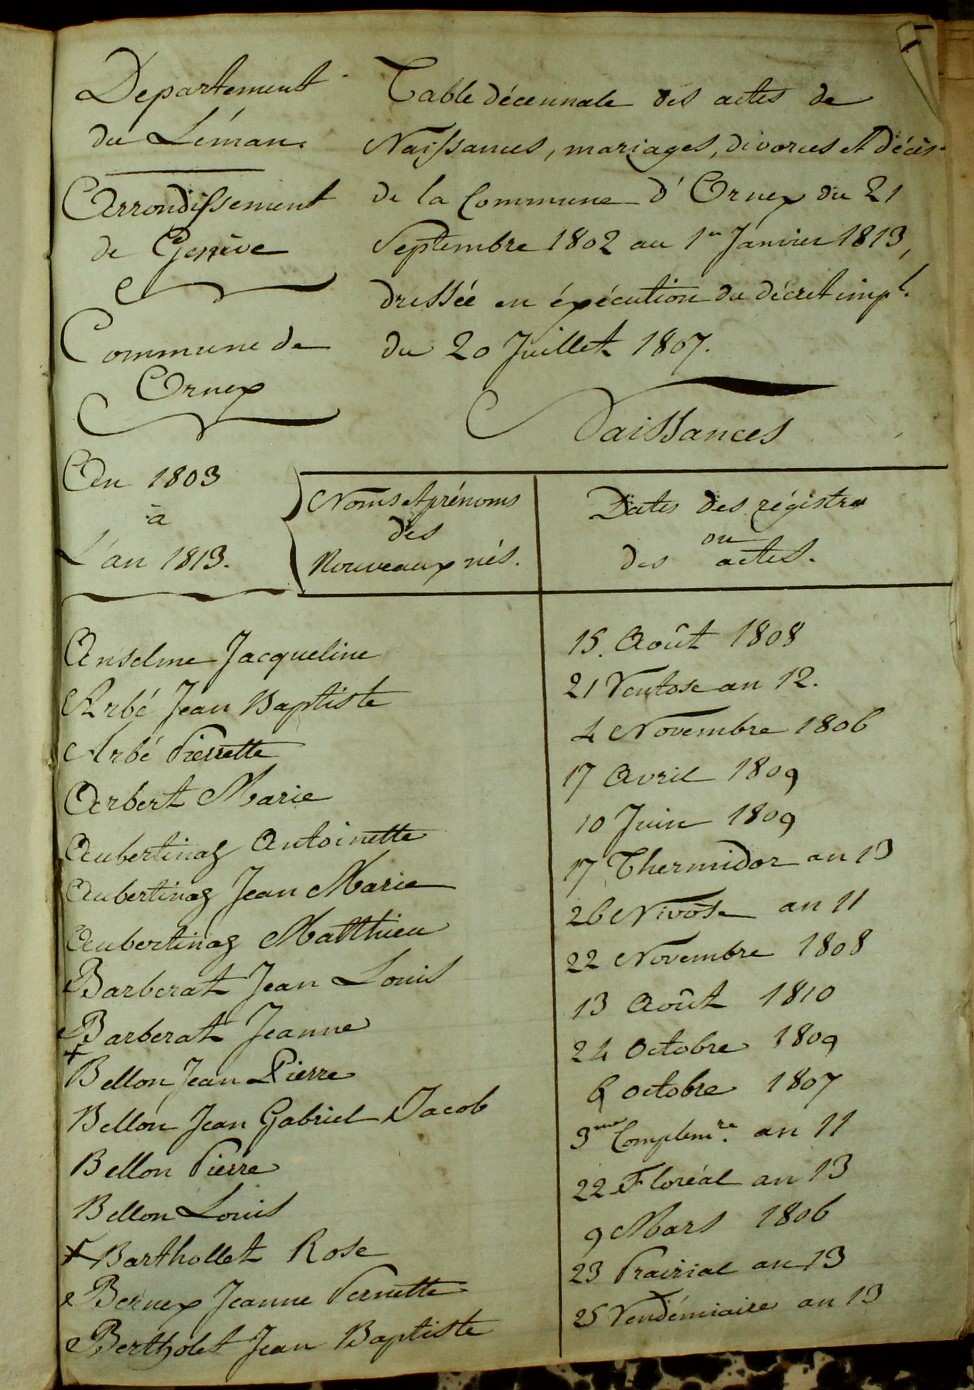 Departement
du Léman.
Arrondissement
de Genève
Commune de
Ornex
An 1803
à
L'an 1813.
Table décennale des actes de
Naissances, mariages, divorces et décès
de la Commune d'Ornex du 21
Septembre 1802 au 1er Janvier 1813,
dressée en éxécution du décret impl.
du 20 Juillet 1807.
Naissances
Noms et prénoms
des
Nouveaux nés.
Dates des régistres
ou
des actes.
Anselme Jacqueline 15. Août 1808
Arbé Jean Baptiste 21 Ventose an 12.
Arbé Pierrette 4 Novembre 1806
Arbert Marie 17 Avril 1809
Aubertinaz Antoinette 10 Juin 1809
Aubertinaz Jean Marie 17 Thermidor an 13
Aubertinaz Matthieu 26 Nivôse an 11
Barberat Jean Louis 22 Novembre 1808
Barberat Jeanne 13 Août 1810
Bellon Jean Pierre 24 Octobre 1809
Bellon Jean Gabriel Jacob 6 octobre 1807
Bellon Pierre 3me Complemre. an 11
Bellon Louis 22 Floréal an 13
Barthollet Rose 9 Mars 1806
Bernex Jeanne Pernette 23 Prairial an 13
Bertholet Jean Baptiste 25 Vendémiaire an 13